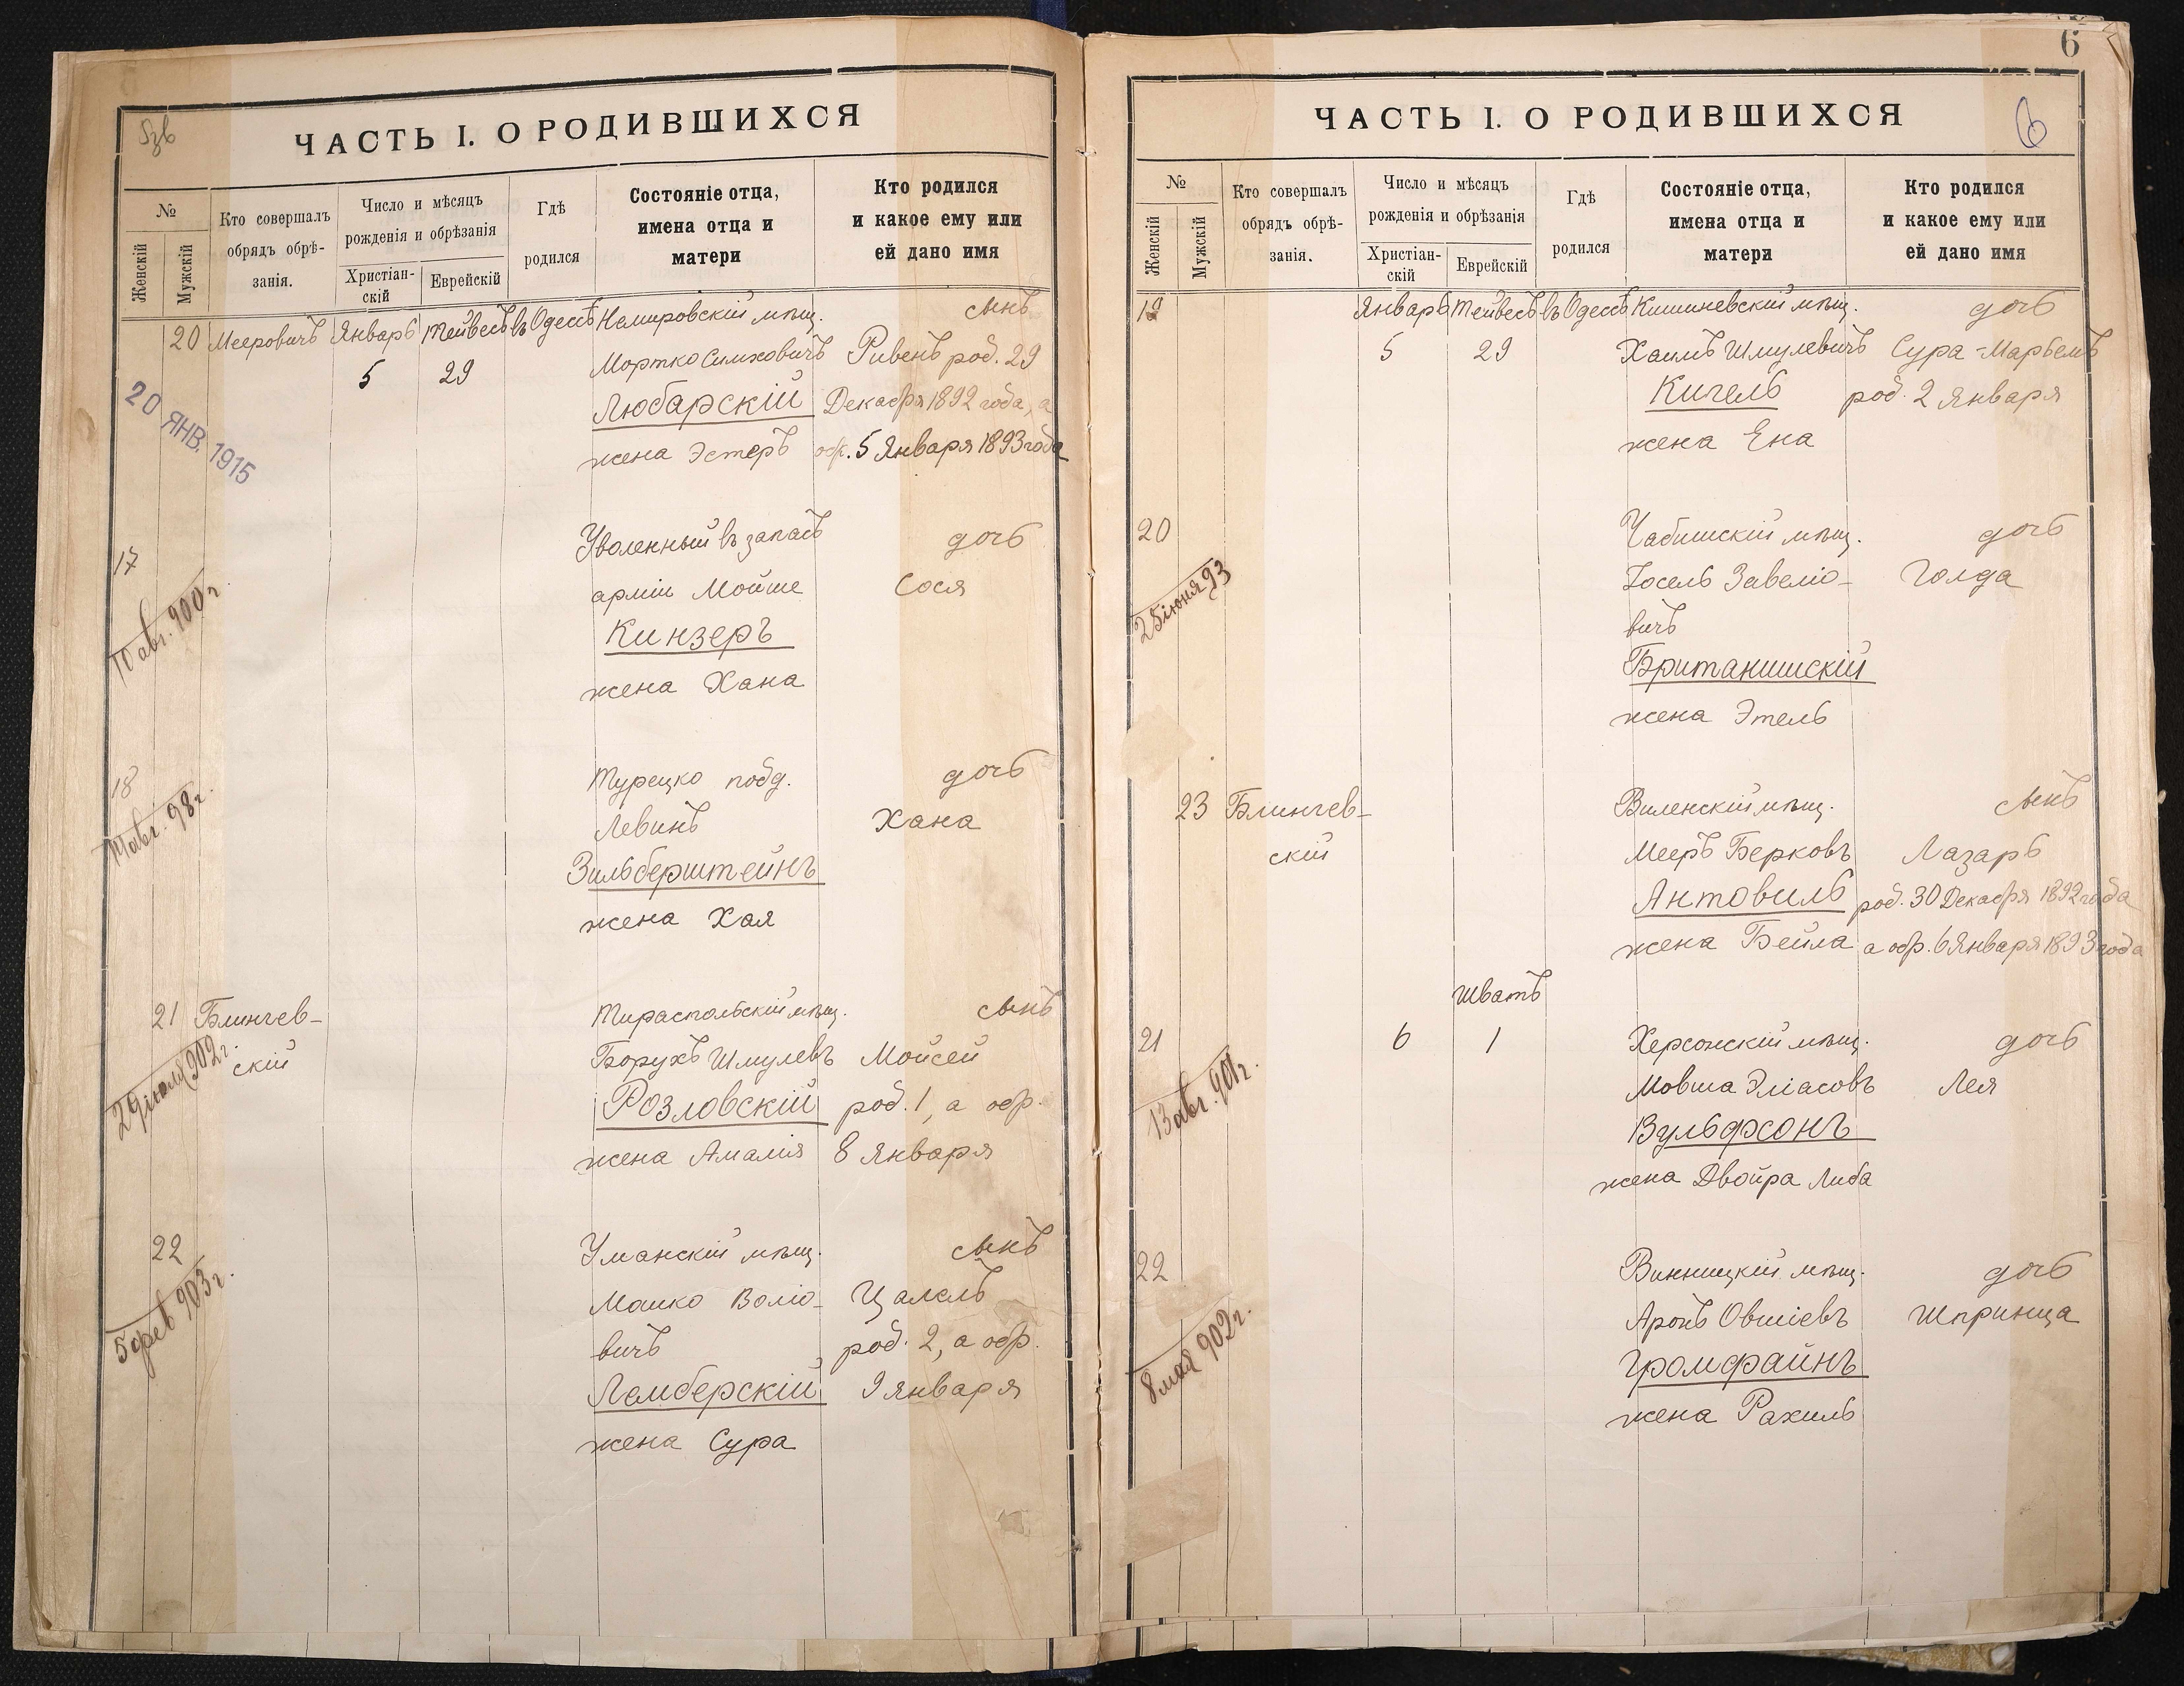 ЧАСТЬ I. О РОДИВШИХСЯ
№
Женскій
Мужскій
Кто совершалъ
обрядъ обрѣ-
занія.
Число и мѣсяцъ
рожденія и обрѣзанія
Христіан-
скій
Еврейскій
Гдѣ
родился
Состояніе отца,
имена отца и
матери
Кто родился
и какое ему или
ей дано имя
20 Мееровичъ Январь Тейвесъ въ Одессѣ Немировскій мѣщ. сынъ
5 29 Мортко Симховичъ Рувенъ род. 29
Любарскій Декабря 1892 года, а
жена Эстеръ обр. 5 Января 1893 года
20 ЯНВ. 1915
17 Уволенный въ запасъ дочь
арміи Мойше Сося
10 авг. 900 г.
Кинзеръ
жена Хана
18 Турецко подд. дочь
авг. 98 г.
Левинъ Хана
Зильберштейнъ
жена Хая
21 Блинчев- Тираспольскій мѣщ. сынъ
скій Борухъ Шмулевъ Мойсей
29 іюля 902 г.
Розловскій род. 1, а обр.
жена Амалія 8 Января
22 Уманскій мѣщ. сынъ
5 фев 903 г.
Манко Воліо- Цалель
вичъ род. 2, а обр.
Лемберскій 9 января
жена Сура
6
6
ЧАСТЬ I. О РОДИВШИХСЯ
№
Женскій
Мужскій
Кто совершалъ
обрядъ обрѣ-
занія.
Число и мѣсяцъ
рожденія и обрѣзанія
Христіан-
скій
Еврейскій
Гдѣ
родился
Состояніе отца,
имена отца и
матери
Кто родился
и какое ему или
ей дано имя
19 Январь Тейвесъ въ Одессѣ Кишиневскій мѣщ. дочь
5 29 Хаимъ Шмулевичъ Сура-Марьемъ
Кигель род. 2 Января
жена Ена
20 Чабишскій мѣщ. дочь
25 іюня 93
Іосель Завеліо- Голда
вичъ
Британишскій
жена Этель
23 Блинчев- Виленскій мѣщ. сынъ
скій Мееръ Берковъ Лазарь
Антовиль род. 30 Декабря 1892 года
жена Бейла а обр. 6 Января 1893 года
Шватъ
21 6 1 Херсонскій мѣщ. дочь
13 авг. 901 г.
Мовша Эліасовъ Лея
Вульфсонъ
жена Двойра Либа
22 Винницкій мѣщ. дочь
8 мая 902 г.
Аронъ Овшіевъ Шпринца
Громфайнъ
жена Рахиль